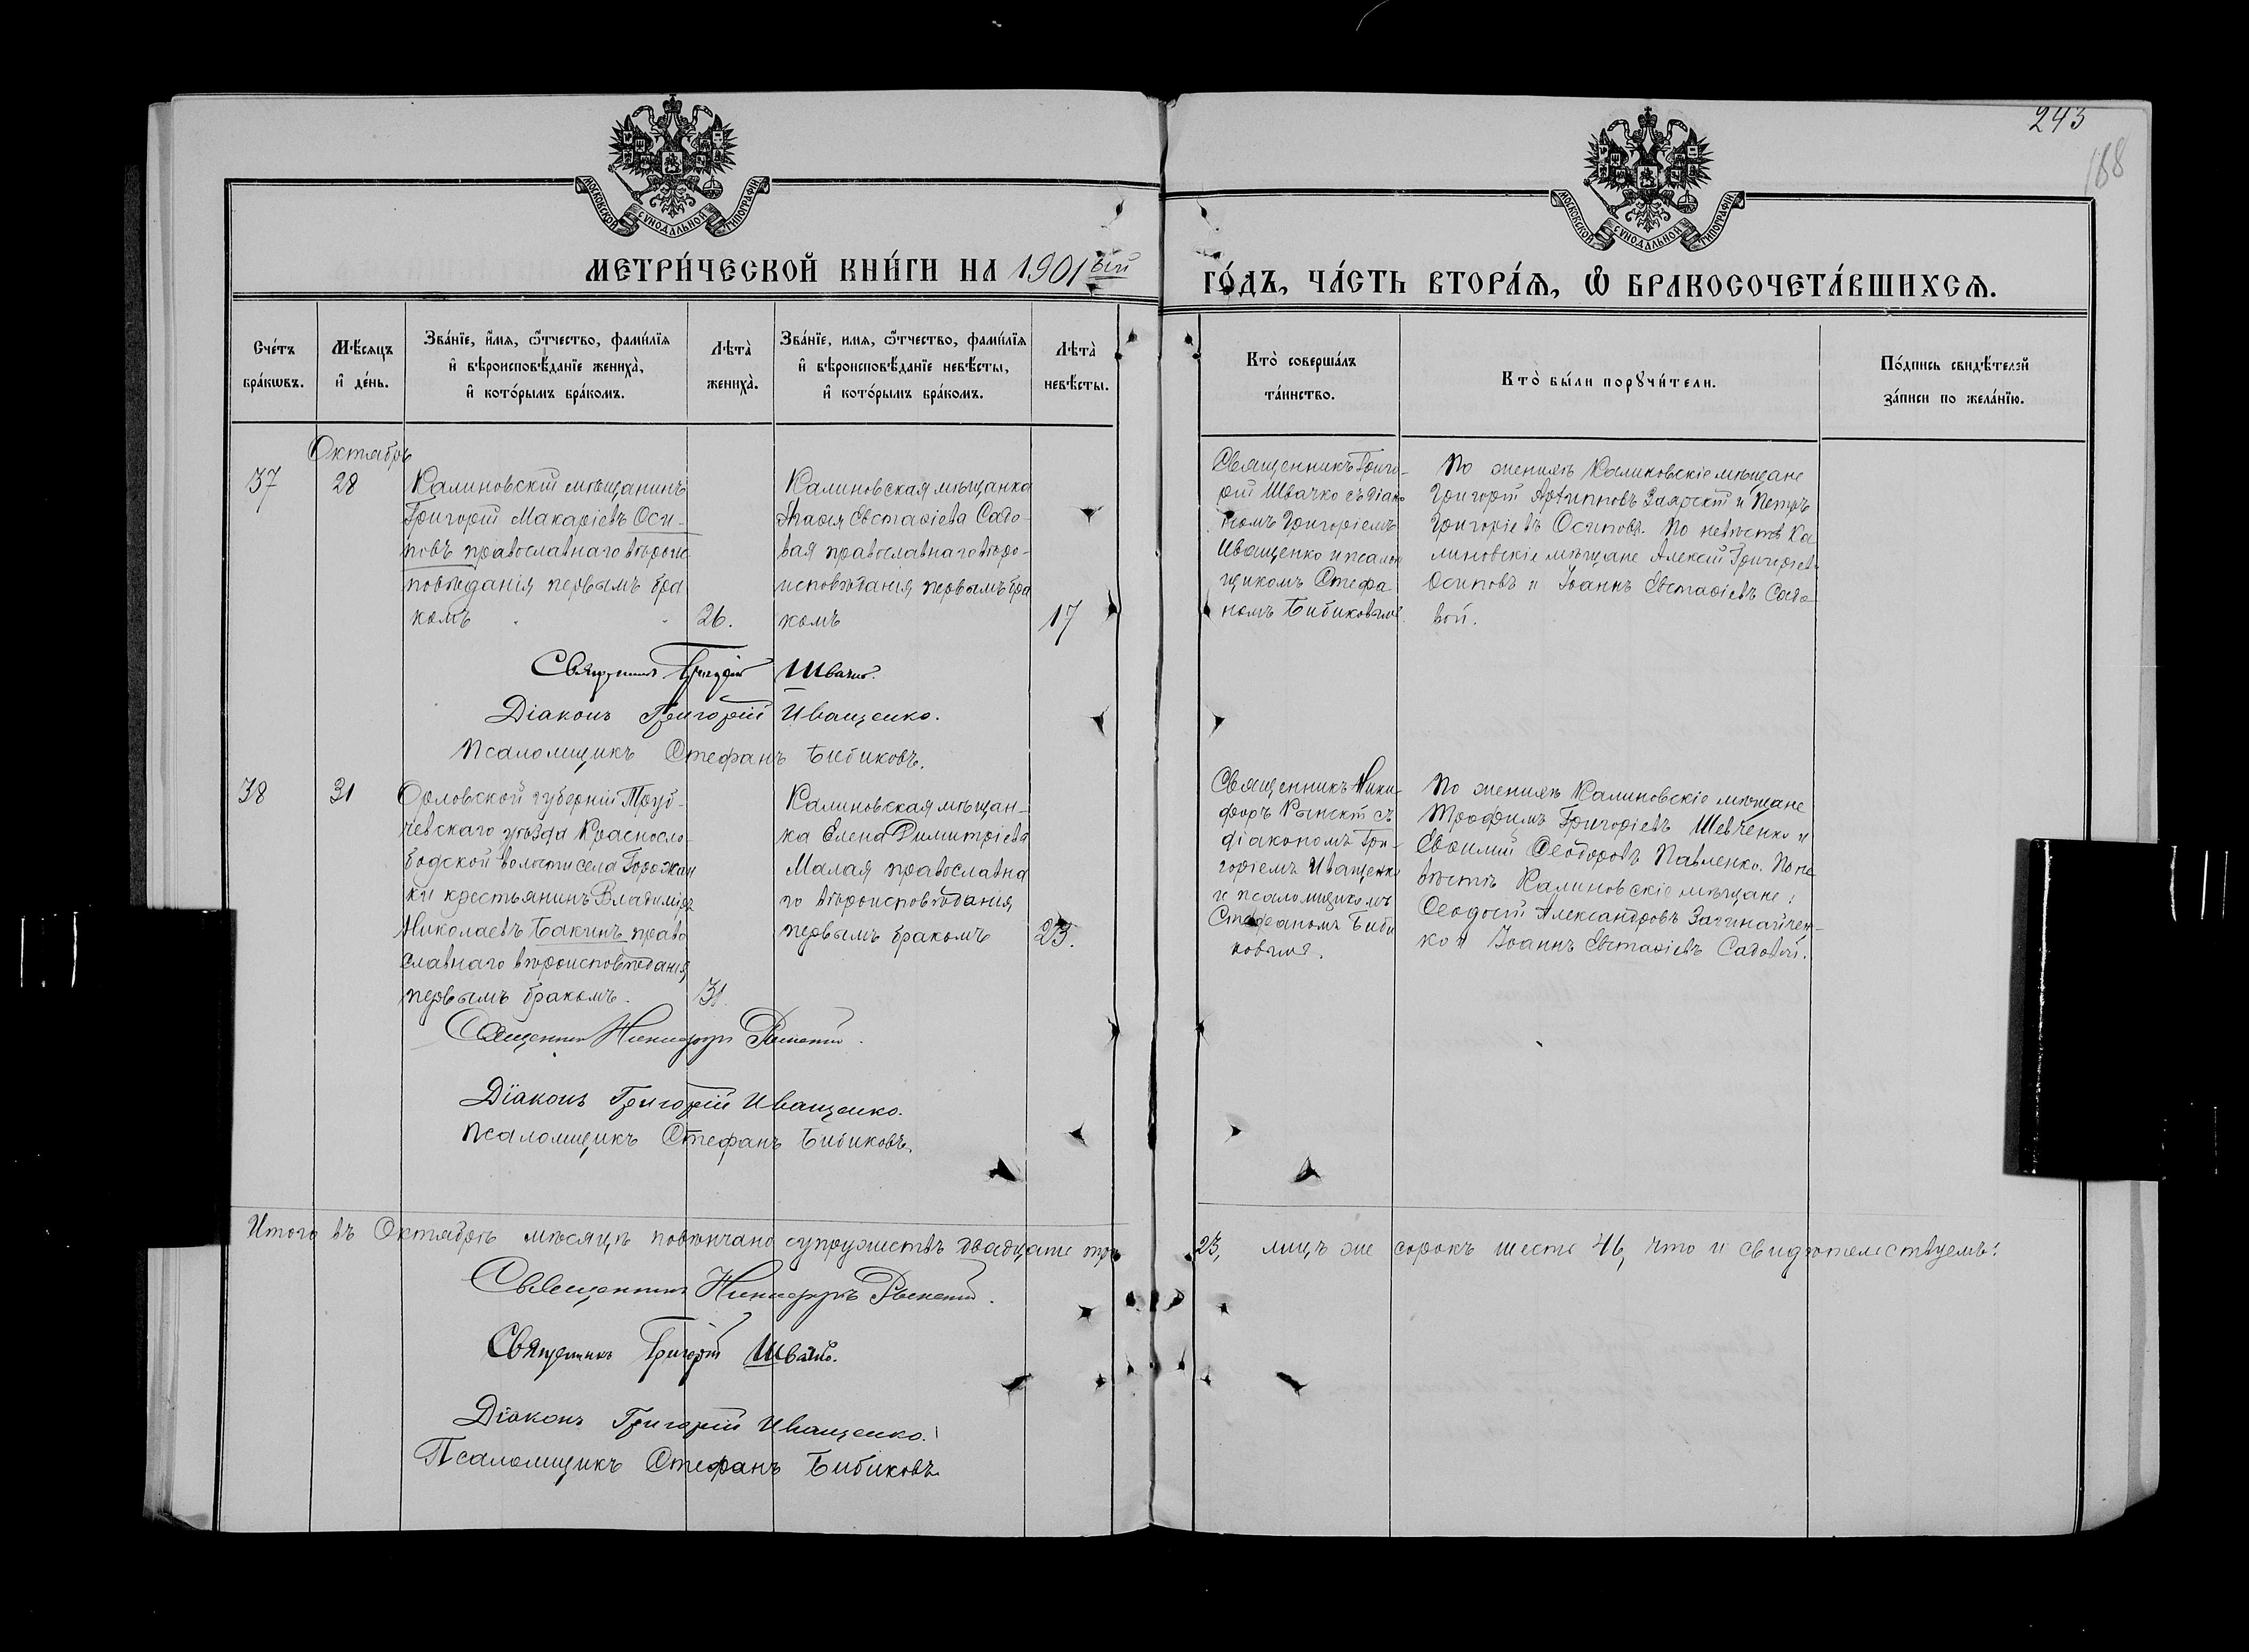 243
188
МОСКОВСКОЙ СѴНОДАЛЬНОЙ ТИПОГРАФІИ
МОСКОВСКОЙ СѴНОДАЛЬНОЙ ТИПОГРАФІИ
МЕТРИ́ЧЕСКОЙ КНИ́ГИ НА 1901ый
ГО́ДЪ, ЧА́СТЬ ВТОРА́Ѧ, Ѽ БРАКОСОЧЕТА́ВШИХСѦ.
Сче́тъ
бра́кѡвъ.
Мѣ́сяцъ
и҆ де́нь.
Зва́нїе, и҆́мя, ѻ҆́тчество, фами́лїя
и҆ вѣроисповѣ́данїе жениха̀,
и҆ кото́рымъ бра́комъ.
Лѣта̀
жениха̀.
Зва́нїе, имя, ѻ҆́тчество, фами́лїя
и҆ вѣроисповѣ́данїе невѣ́сты,
и҆ кото́рымъ бра́комъ.
Лѣта̀
невѣ́сты.
Кто̀ соверша́лъ
та́инство.
Кто̀ бы́ли порꙋчи́тели.
По́дпись свидѣ́телей
за́писи по жела́нїю.
Октябрь
37
28
Калиновскій мѣщанинъ
Григорій Макаріевъ Оси-
повъ православнаго вѣроис
повѣданія первымъ бра
комъ
26.
Калиновская мѣщанка
Агафія Евстафіева Садо-
вая православнаго вѣро-
исповѣданія первымъ бра
комъ
17
Священникъ Григо-
рій Швачко съ діако
номъ Григоріемъ
Иващенко и псалом
щикомъ Стефа
номъ Бибиковымъ.
По женихѣ Калиновскіе мѣщане
Григорій Архипповъ Заярскій и Петръ
Григоріевъ Осиповъ. По невѣстѣ Ка
линовскіе мѣщане Алексій Григоріевъ
Осиповъ и Іоаннъ Евстафіевъ Садо-
вой.
Священникъ Григорій Швачко.
Діаконъ Григорій Иващенко.
Псаломщикъ Стефанъ Бибиковъ.
38
31
Орловской губерніи Труб-
чевскаго уѣзда Красносло-
бодской волости села Горожан
ки крестьянинъ Владиміръ
Николаевъ Бакинъ право
славнаго вѣроисповѣданія
первымъ бракомъ.
31.
Калиновская мѣщан-
ка Елена Димитріева
Малая православна
го вѣроисповѣданія
первымъ бракомъ
23.
Священникъ Ники-
форъ Рынскій съ
діакономъ Гри-
горіемъ Иващенко
и псаломщикомъ
Стефаномъ Биби
ковымъ.
По женихѣ Калиновскіе мѣщане
Трофимъ Григоріевъ Шевченко и
Евфимій Ѳеодоровъ Павленко. По не
вѣстѣ Калиновскіе мѣщане:
Ѳеодосій Александровъ Зачинайчен-
ко и Іоаннъ Евстафіевъ Садовой.
Священникъ Никифоръ Рынскій.
Діаконъ Григорій Иващенко.
Псаломщикъ Стефанъ Бибиковъ.
Итого въ Октябрѣ мѣсяцѣ повѣнчано супружествъ двадцать три 23, лицъ же сорокъ шесть 46, что и свидѣтельствуемъ:
Священникъ Никифоръ Рынскій.
Священникъ Григорій Швачко.
Діаконъ Григорій Иващенко.
Псаломщикъ Стефанъ Бибиковъ.